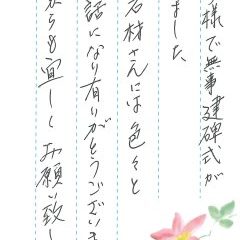 様で無事建碑式が
ました
石材さんには色々と
話になり有りがとうございま
からも宜しくお願い致し